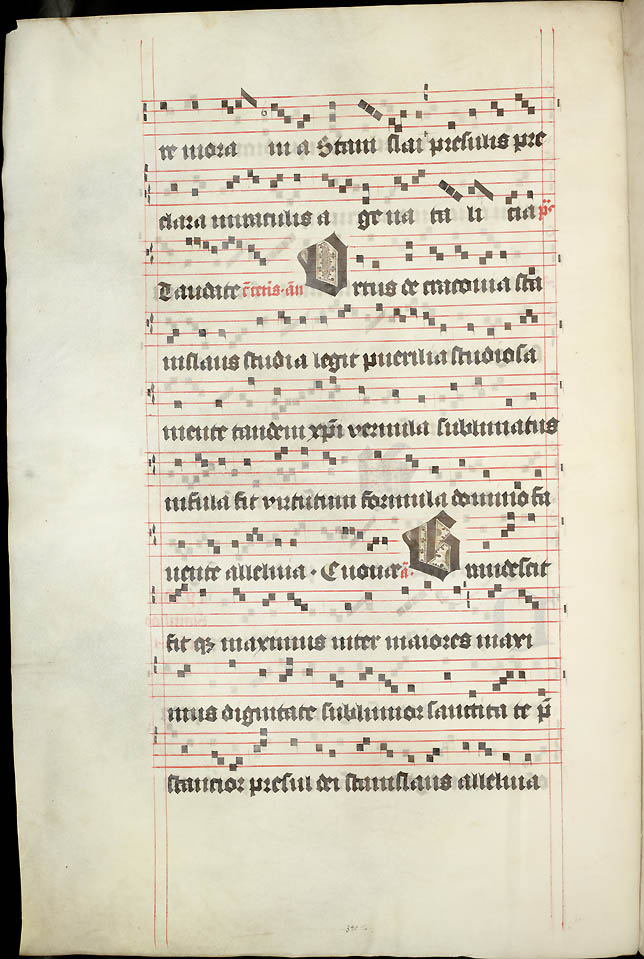 re mora in a Stani slai presulis pre
clara miraculis a ge na ta li cia p̄s
Laudate c̄teris an̄
Ortus de cracovia sta
nislaus studia legit puerilia studiosa
mente tandem xp̄i vernula sublimatus
infula fit virtutum formula domino fa
vente alleluia · Euouae a̅
Erudescit
fit qꝫ maximus inter maiores maxi
mus dignitate sublimior sanctita te p̄
stancior presul dei stanislaus alleluia